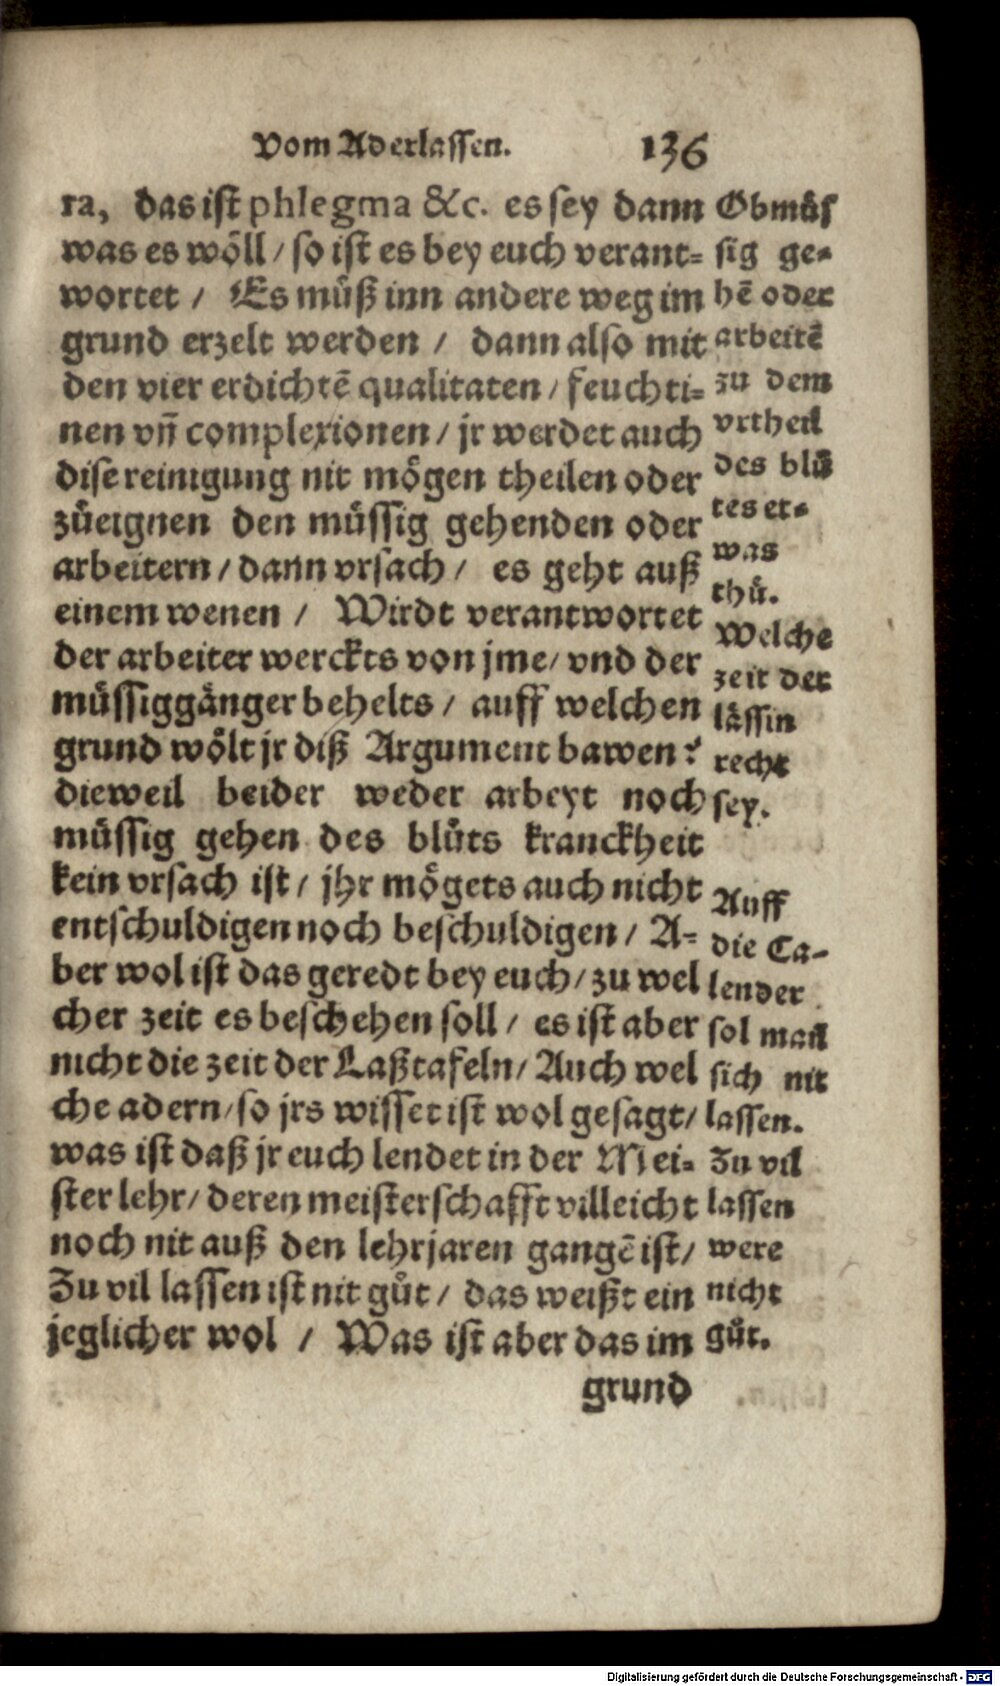 Vom Aderlassen. 136
ra, das ist phlegma &c. es sey dann
was es wöll / so ist es bey euch verant=
wortet / Es můß inn andere weg im
grund erzelt werden / dann also mit
den vier erdichtē qualitaten / feuchti=
nen vn̄ complexionen / jr werdet auch
dise reinigung nit mögen theilen oder
zůeignen den müssig gehenden oder
arbeitern / dann vrsach / es geht auß
einem wenen / Wirdt verantwortet
der arbeiter werckts von jme / vnd der
müssiggänger behelts / auff welchen
grund wölt jr diß Argument bawen?
dieweil beider weder arbeyt noch
müssig gehen des blůts kranckheit
kein vrsach ist / jhr mögets auch nicht
entschuldigen noch beschuldigen / A=
ber wol ist das geredt bey euch / zu wel
cher zeit es beschehen soll / es ist aber
nicht die zeit der Laßtafeln / Auch wel
che adern / so jrs wisset ist wol gesagt /
was ist daß jr euch lendet in der Mei=
ster lehr / deren meisterschafft villeicht
noch nit auß den lehrjaren gangē ist /
Zu vil lassen ist nit gůt / das weißt ein
jeglicher wol / Was ist aber das im
grund
Ob müs
sig ge=
hē oder
arbeitē
zu dem
vrtheil
des blů
tes et=
was
thů.
Welche
zeit der
lässin
recht
sey.
Auff
die Ca=
lender
sol man
sich nit
lassen.
Zu vil
lassen
were
nicht
gůt.
Digitalisierung gefördert durch die Deutsche Forschungsgemeinschaft - DFG